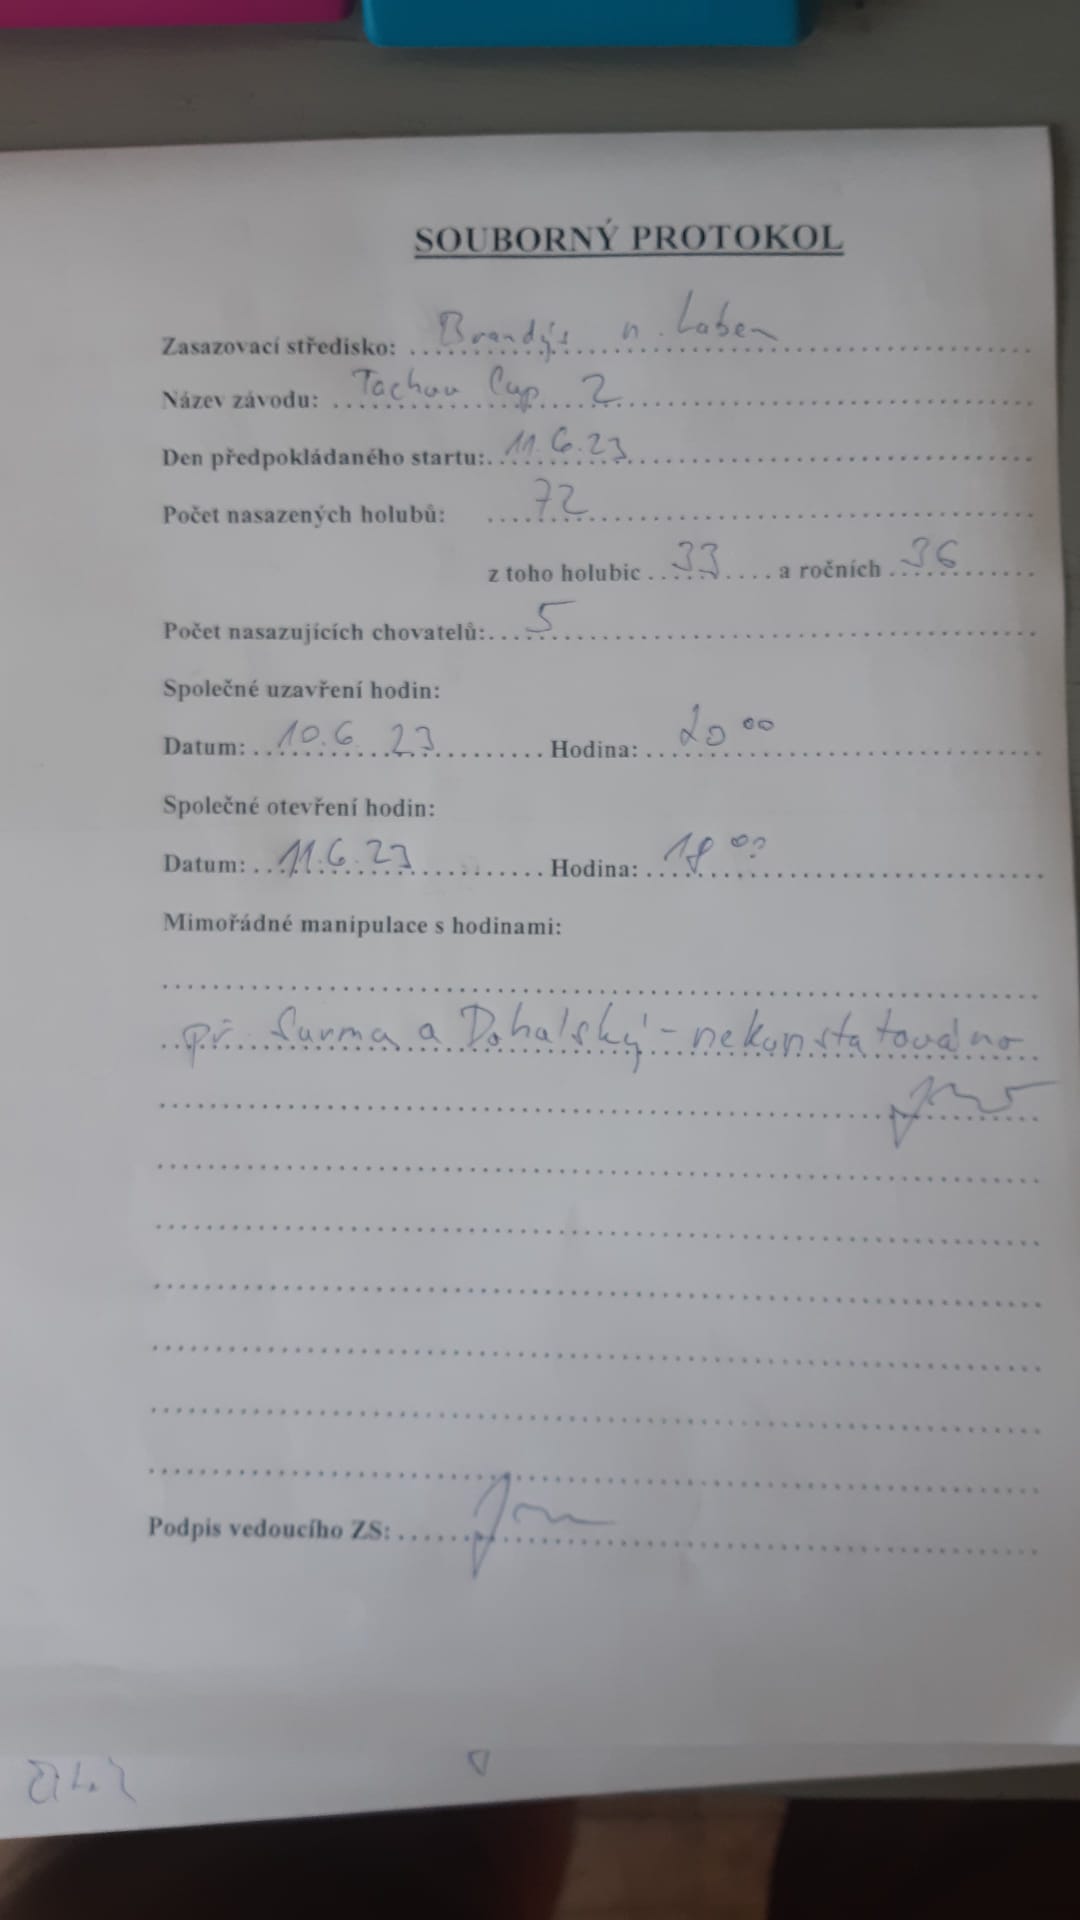 SOUBORNÝ PROTOKOL
Zasazovací středisko: Brandýs n. Laben
Název závodu: Tachov Cup 2
Den předpokládaného startu: 11.6.23
Počet nasazených holubů: 72
z toho holubic 33 a ročních 36
Počet nasazujících chovatelů: 5
Společné uzavření hodin:
Datum: 10.6.23 Hodina: 20 00
Společné otevření hodin:
Datum: 11.6.23 Hodina: 18 00
Mimořádné manipulace s hodinami:
př. Surma a Dohalský - nekonstatováno
Podpis vedoucího ZS: